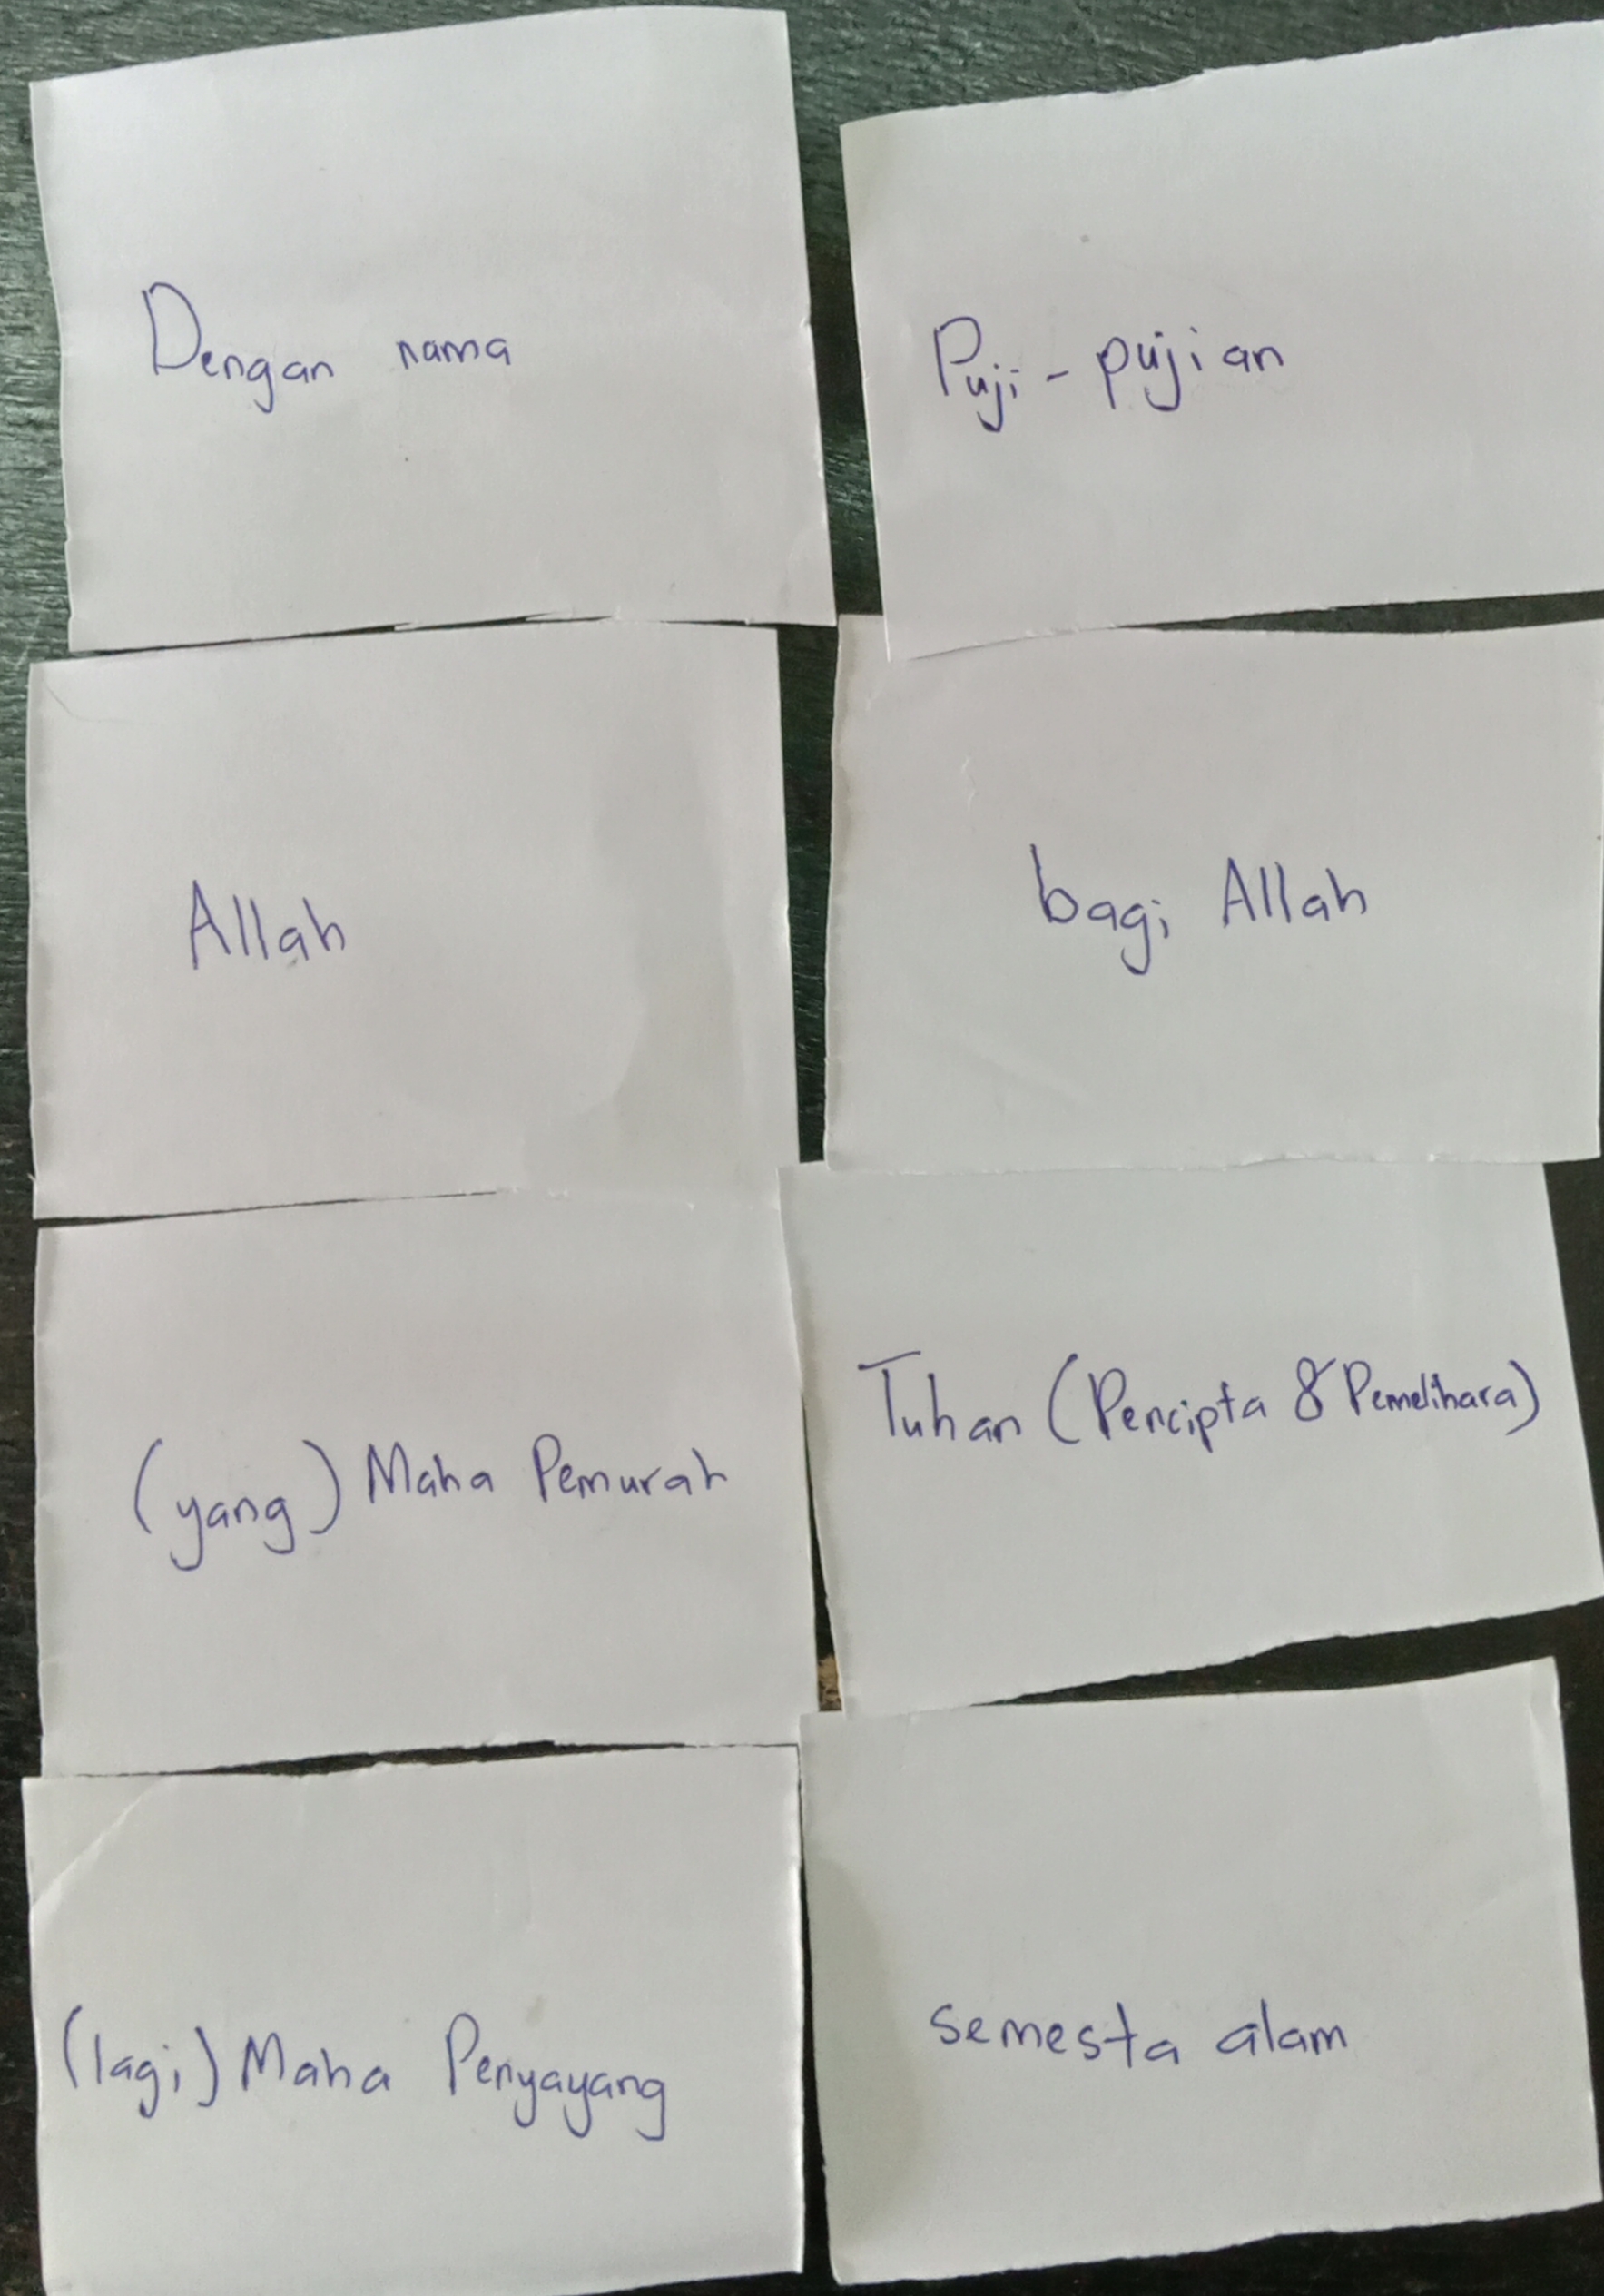 Dengan nama
Allah
(yang) Maha Pemurah
(lagi) Maha Penyayang
Puji-pujian
bagi Allah
Tuhan (Pencipta & Pemelihara)
semesta alam